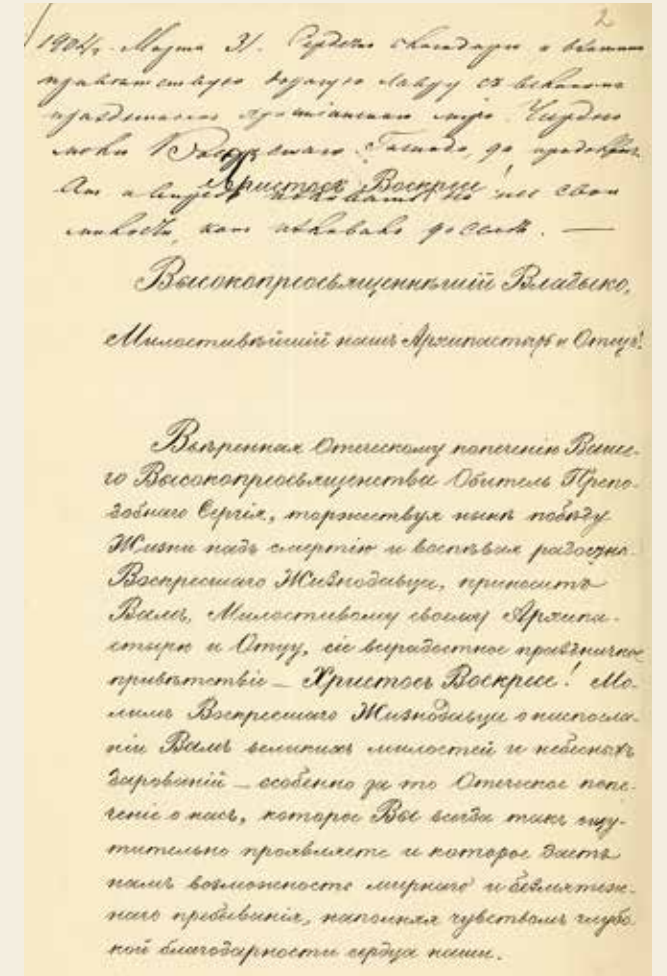 2
1904 г. Марта 31. Сердечно благодарю и взаимно
привѣтствую дорогую Лавру съ великимъ
праздникомъ христіанскаго міра. Усердно
молю Воскресшаго Господа, да
Христосъ Воскресе! свои
милости, доселѣ. —
Высокопреосвященнѣйшій Владыко,
Милостивѣйшій нашъ Архипастырь и Отецъ!
Ввѣренная Отеческому попеченію Ваше-
го Высокопреосвященства Обитель Препо-
добнаго Сергія, торжествуя нынѣ побѣду
Жизни надъ смертію и воспѣвая радостно
Воскресшаго Жизнодавца, приноситъ
Вамъ, Милостивому своему Архипа-
стырю и Отцу, сіе всерадостное праздничное
привѣтствіе — Христосъ Воскресе! Мо-
лимъ Воскресшаго Жизнодавца о ниспосла-
ніи Вамъ великихъ милостей и небесныхъ
дарованій — особенно за то Отеческое попе-
ченіе о насъ, которое Вы всегда такъ ощу-
тительно проявляете и которое даетъ
намъ возможность мирнаго и безмятеж-
наго пребыванія, наполняя чувствомъ глубо-
кой благодарности сердца наши.